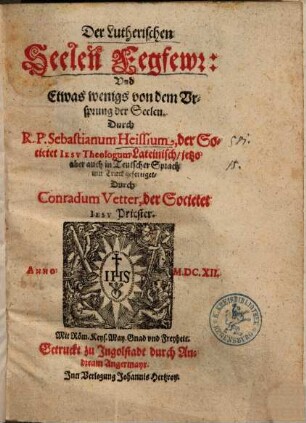 Der Lutherischen
Seelen Fegfewr:
Vnd
Etwas wenigs von dem Vr-
sprung der Seelen.
Durch
R. P. Sebastianum Heissium, der So-
cietet IESV Theologum Lateinisch / jetzo
aber auch in Teutscher Sprach
mit Truck gefertiget /
Durch
Conradum Vetter, der Societet
IESV Priester.
ANNO
IHS
M.DC.XII.
Mit Röm. Keys. May. Gnad vnd Freyheit.
Getruckt zu Ingolstadt durch An-
dream Angermayr.
Inn Verlegung Johannis Hertzroy.